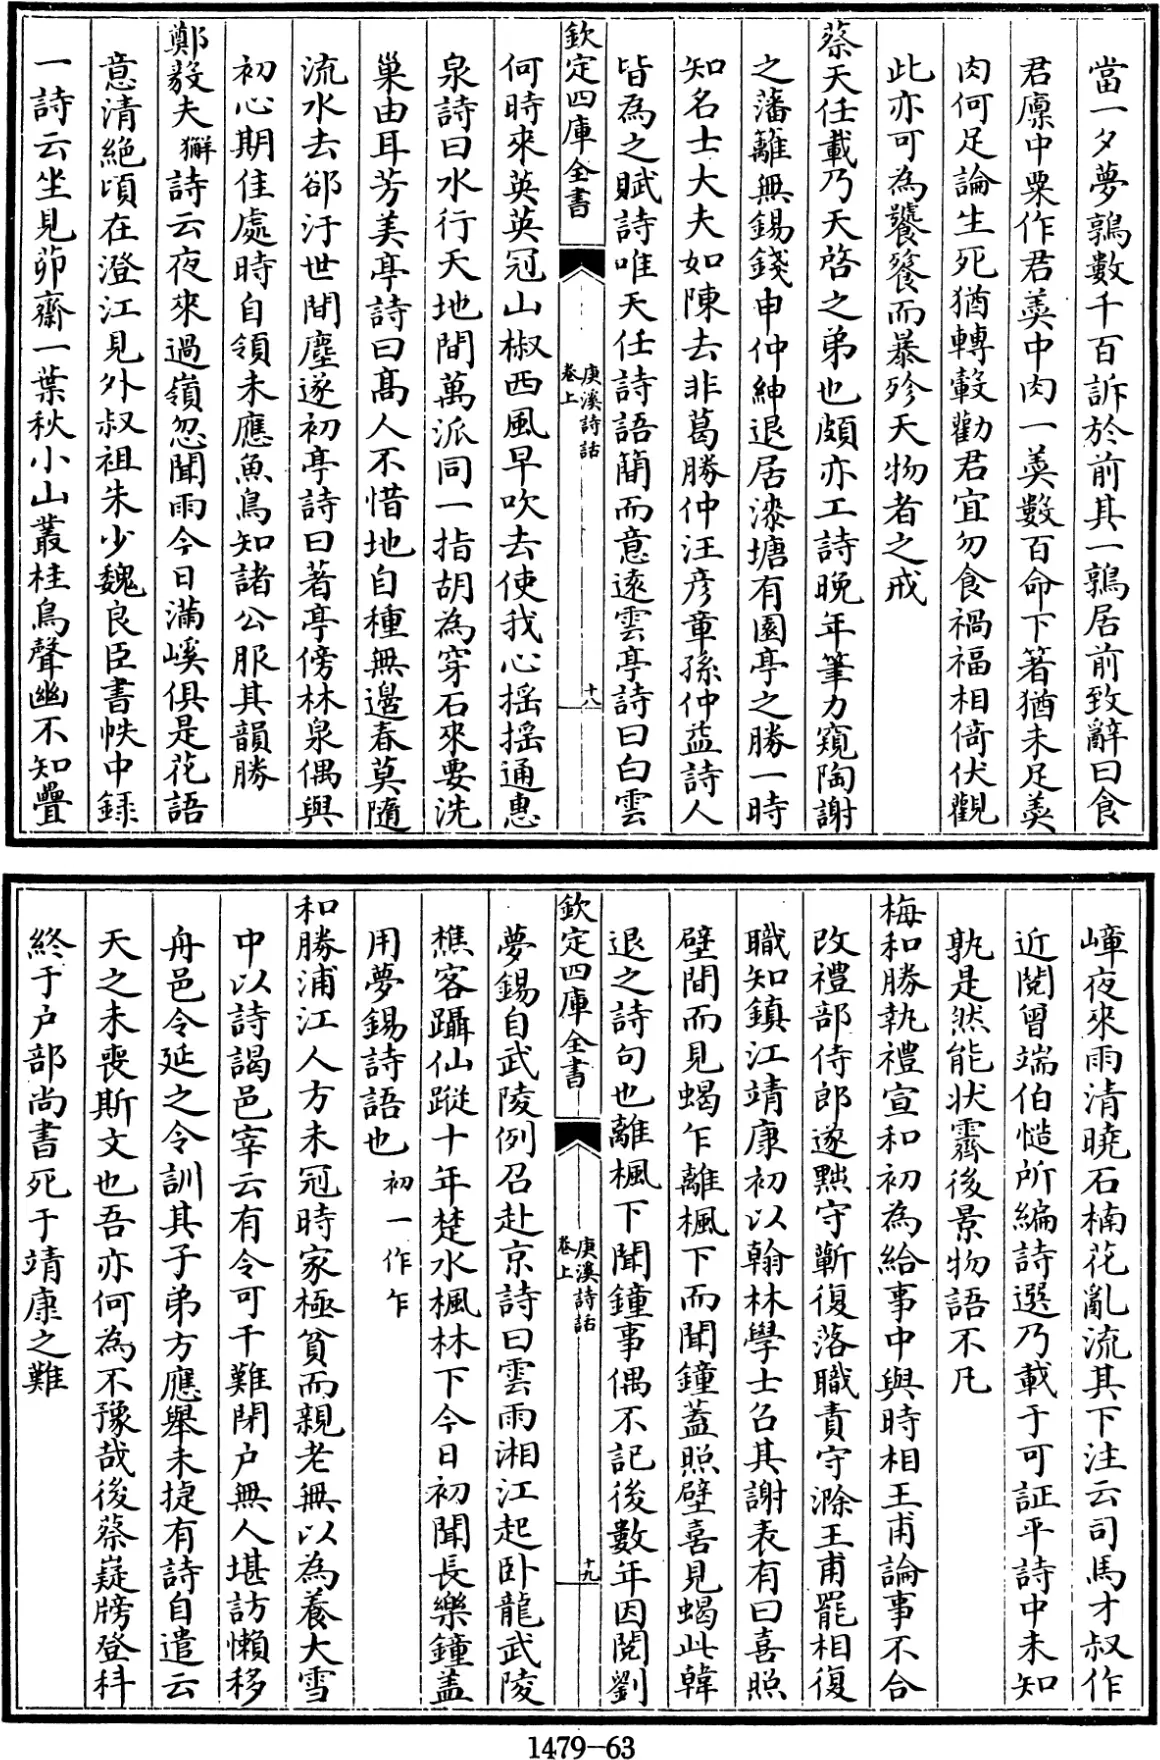 當一夕夢鶉數千百訴於前其一鶉居前致辭曰食
君廩中粟作君羮中肉一羮數百命下箸猶未足羮
肉何足論生死猶轉轂勸君宜勿食禍福相倚伏觀
此亦可為饕餮而暴殄天物者之戒
蔡天任載乃天啓之弟也頗亦工詩晚年筆力窺陶謝
之藩籬無錫錢申仲紳退居漆塘有園亭之勝一時
知名士大夫如陳去非葛勝仲汪彦章孫仲益詩人
皆為之賦詩唯天任詩語簡而意遠雲亭詩曰白雲
欽定四庫全書
庚溪詩話
卷上
十八
何時來英英冠山椒西風早吹去使我心揺揺通惠
泉詩曰水行天地間萬派同一指胡為穿石來要洗
巢由耳芳美亭詩曰髙人不惜地自種無邊春莫隨
流水去郤汙世間塵遂初亭詩曰著亭傍林泉偶與
初心期佳處時自領未應魚鳥知諸公服其韻勝
鄭毅夫獬詩云夜來過嶺忽聞雨今日滿溪俱是花語
意清絶頃在澄江見外叔祖朱少魏良臣書帙中録
一詩云坐見茆齋一葉秋小山叢桂鳥聲幽不知疊
嶂夜來雨清曉石楠花亂流其下注云司馬才叔作
近閲曾端伯慥所編詩選乃載于可証平詩中未知
孰是然能狀霽後景物語不凡
梅和勝執禮宣和初為給事中與時相王甫論事不合
改禮部侍郎遂黜守蘄復落職責守滁王甫罷相復
職知鎮江靖康初以翰林學士召其謝表有曰喜照
壁間而見蝎乍離楓下而聞鐘蓋照壁喜見蝎此韓
退之詩句也離楓下聞鐘事偶不記後數年因閲劉
欽定四庫全書
庚溪詩話
卷上
十九
夢錫自武陵例召赴京詩曰雲雨湘江起卧龍武陵
樵客躡仙蹤十年楚水楓林下今日初聞長樂鐘蓋
用夢錫詩語也初一作乍
和勝浦江人方未冠時家極貧而親老無以為養大雪
中以詩謁邑宰云有令可干難閉户無人堪訪懶移
舟邑令延之令訓其子弟方應舉未捷有詩自遣云
天之未喪斯文也吾亦何為不豫哉後蔡嶷牓登科
終于户部尚書死于靖康之難
1479—63